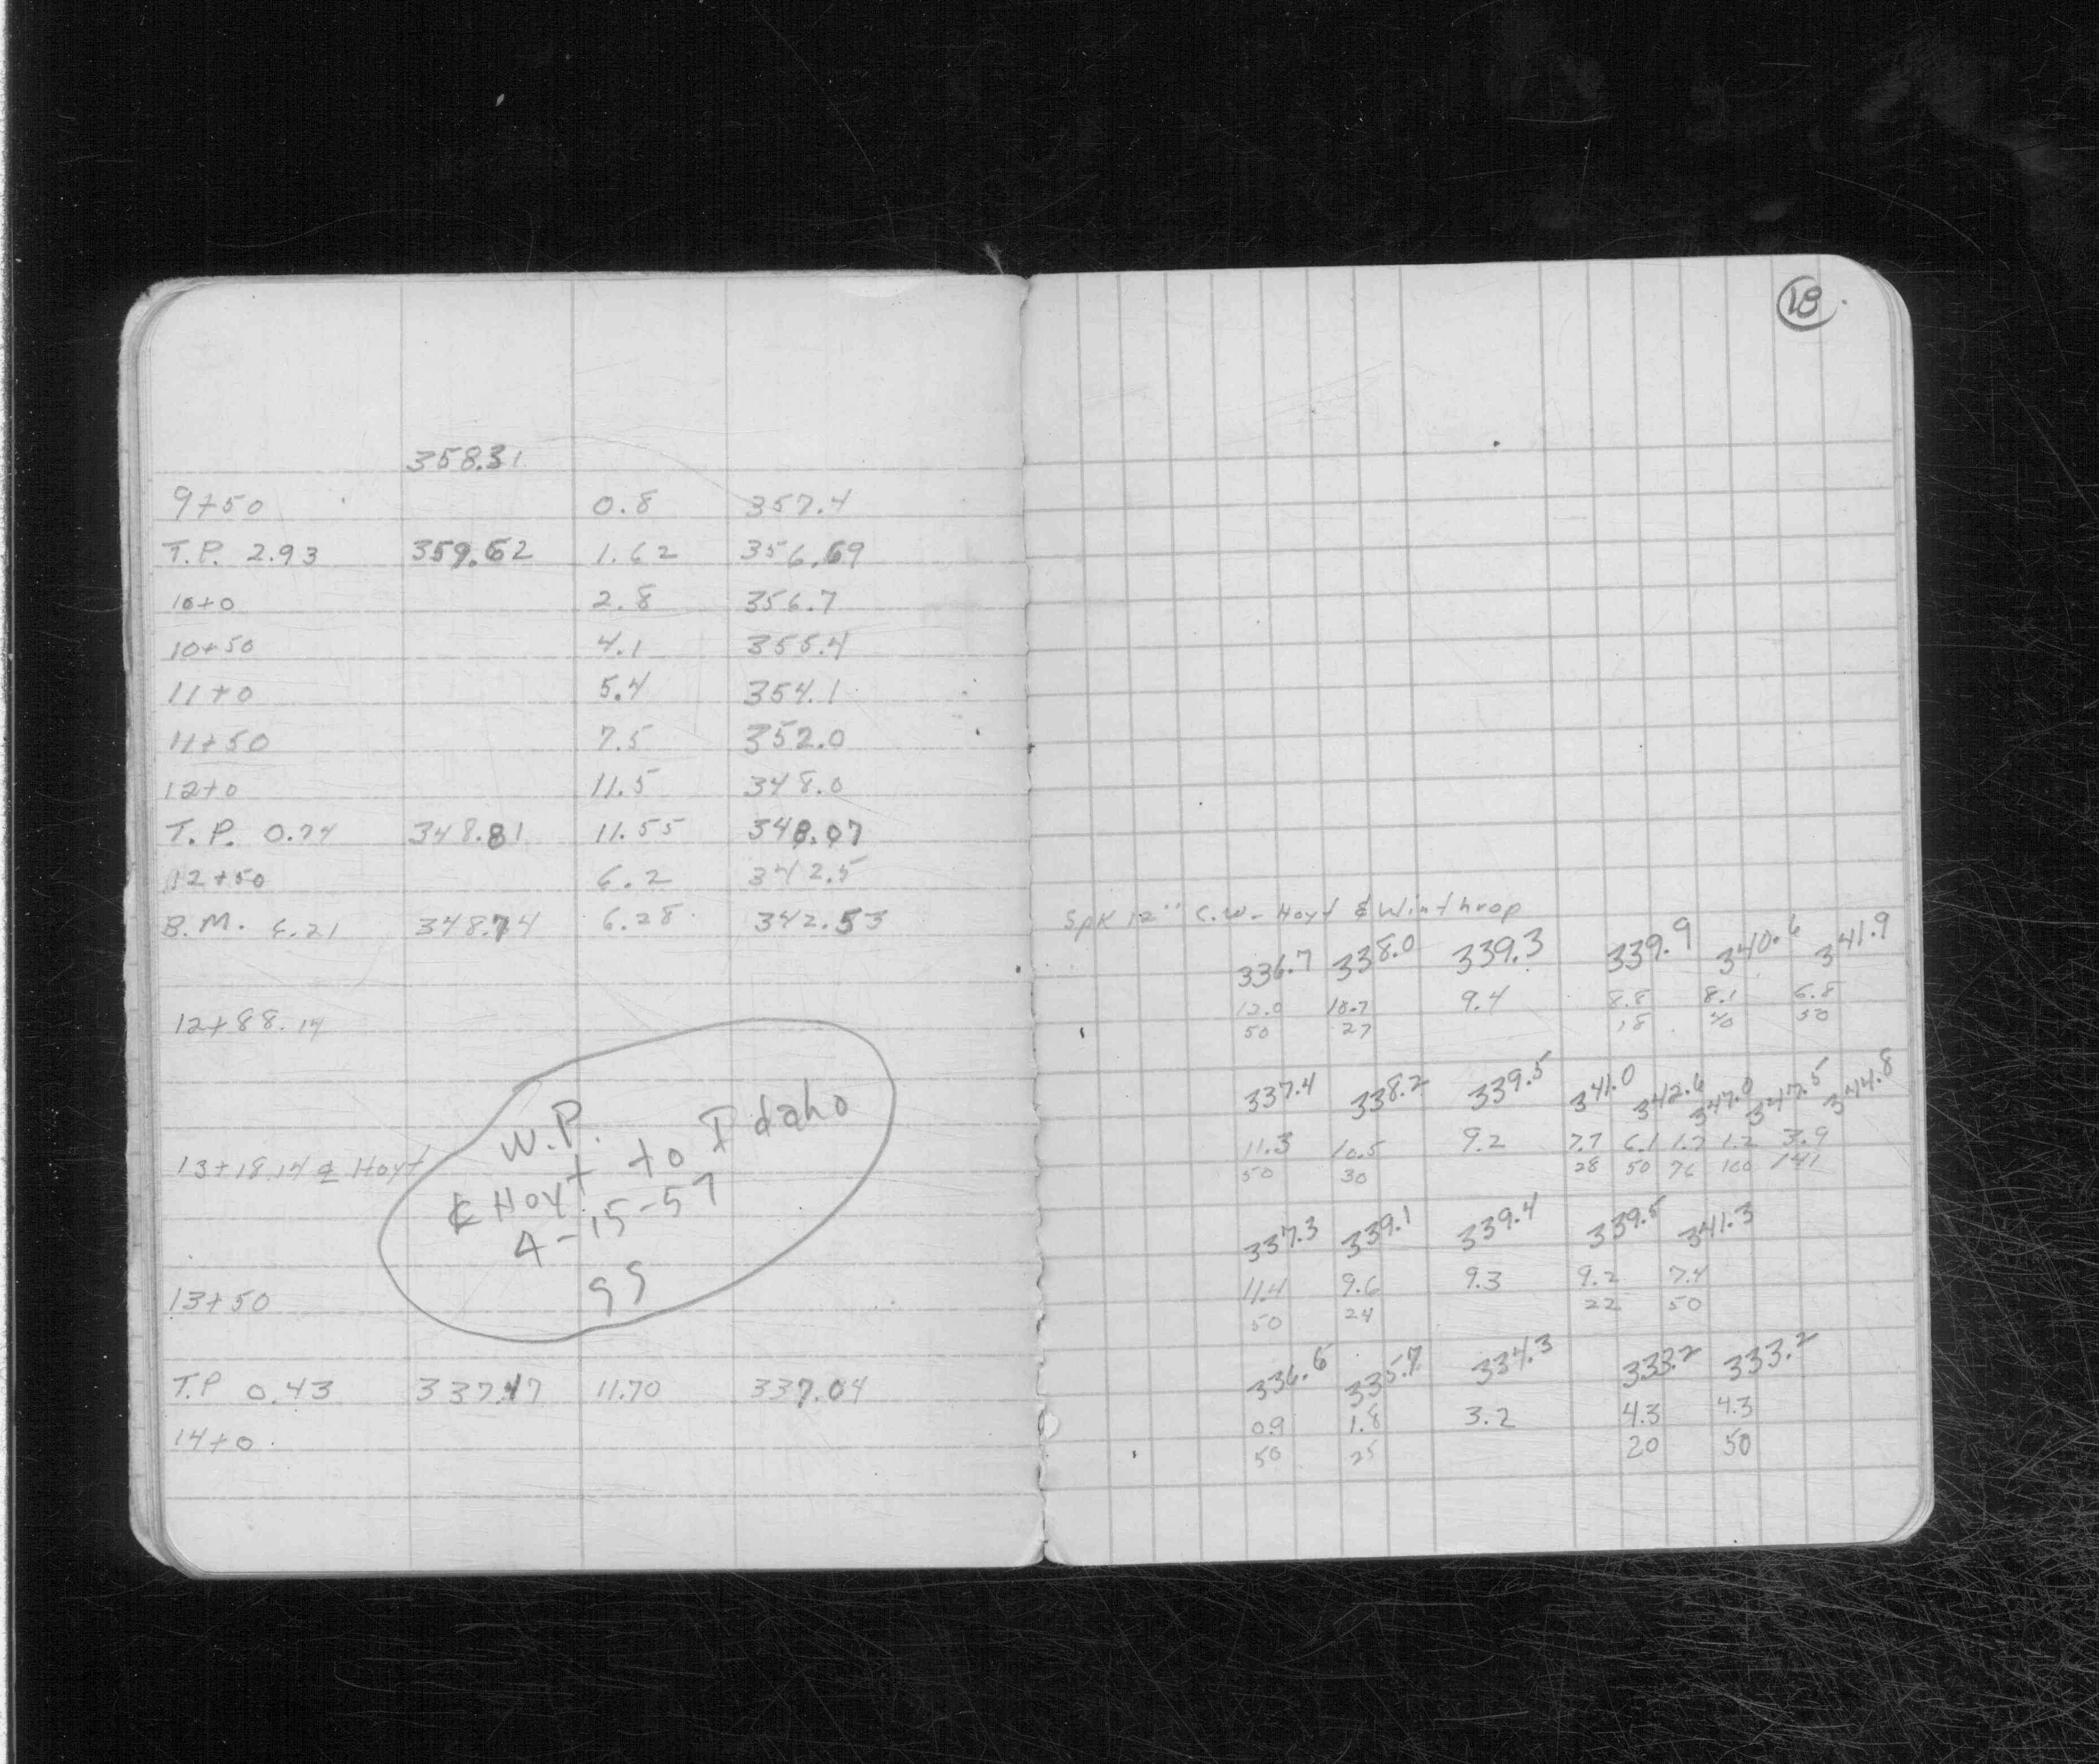 358.31
9+50 0.8 357.4
T.P. 2.93 359.62 1.62 356.69
10+0 2.8 356.7
10+50 4.1 355.4
11+0 5.4 354.1
11+50 7.5 352.0
12+0 11.5 348.0
T.P. 0.74 348.81 11.55 348.07
12+50 6.2 342.5
B.M. 6.21 348.74 6.28 342.53
12+88.14
13+18.14 ℄ Hoyt
W.P.
℄ Hoyt to Idaho
4-15-57
99
13+50
T.P 0.43 337.47 11.70 337.04
14+0
18
Spk 12" C.W- Hoyt & Winthrop
336.7 338.0 339.3 339.9 340.6 341.9
12.0 10.7 9.4 8.8 8.1 6.8
50 27 18 40 50
337.4 338.2 339.5 341.0 342.6 347.0 347.5 344.8
11.3 10.5 9.2 7.7 6.1 1.7 1.2 3.9
50 30 28 50 76 100 141
337.3 339.1 339.4 339.5 341.3
11.4 9.6 9.3 9.2 7.4
50 24 22 50
336.6 335.7 334.3 333.2 333.2
0.9 1.8 3.2 4.3 4.3
50 25 20 50